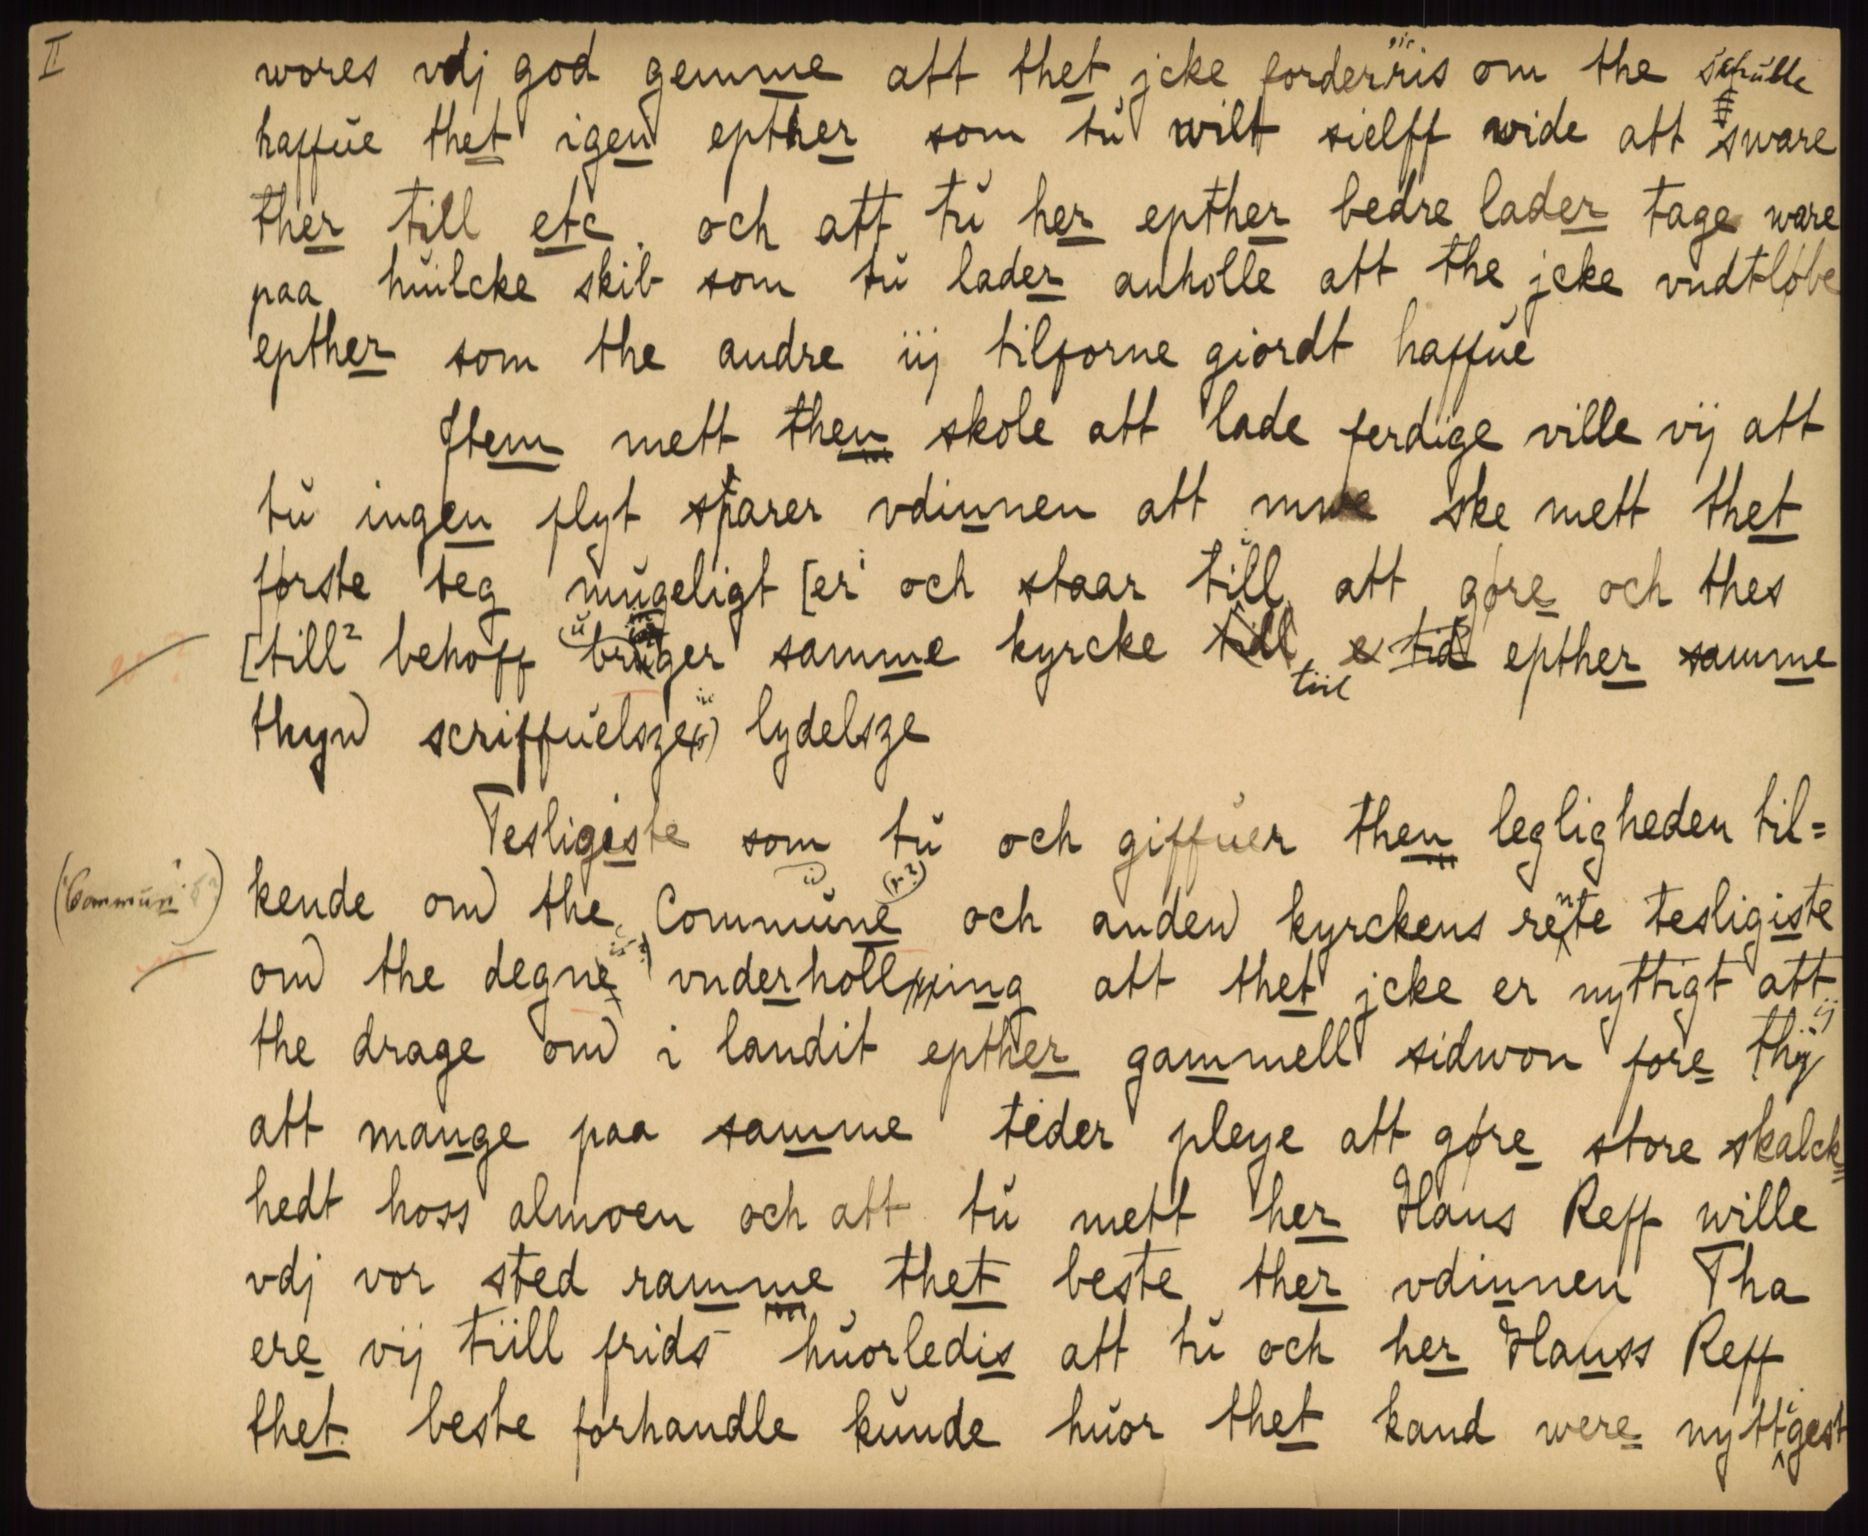 II
wores vdj god gemme att thet jcke forderris om the schulle
haffue thet igen epther som tu wilt sielff wide att sware
ther till etc. och att tu her epther bedre lader tage ware
paa huilcke skib som tu lader anholle att the jcke vndtløbe
epther som the andre iij tilforne giordt haffue
Jtem mett then skole att lade ferdige ville vij att
tu ingen flyt sparer vdinnen att mwe ske mett thet
første teg mugeligt [er¹ och staar till att gøre och thes
[till² behoff bruger samme kyrcke tiil epther samme
thyn scriffuelsze lydelsze
Tesligiste som tu och giffuer then legligheden til=
kende om the Commune och anden kyrckens rente tesligiste
om the degne vnderholling att thet jcke er nyttigt att
the drage om i landit epther gammell sidwon fore thij
att mange paa samme teder pleye att gøre store skalck=
hedt hoss almoen och att tu mett her Hans Reff wille
vdj vor sted ramme thet beste ther vdinnen Tha
ere vij tiill frids huorledis att tu och her Hanss Reff
thet beste forhandle kunde huor thet kand were nyttigest
(Commun)